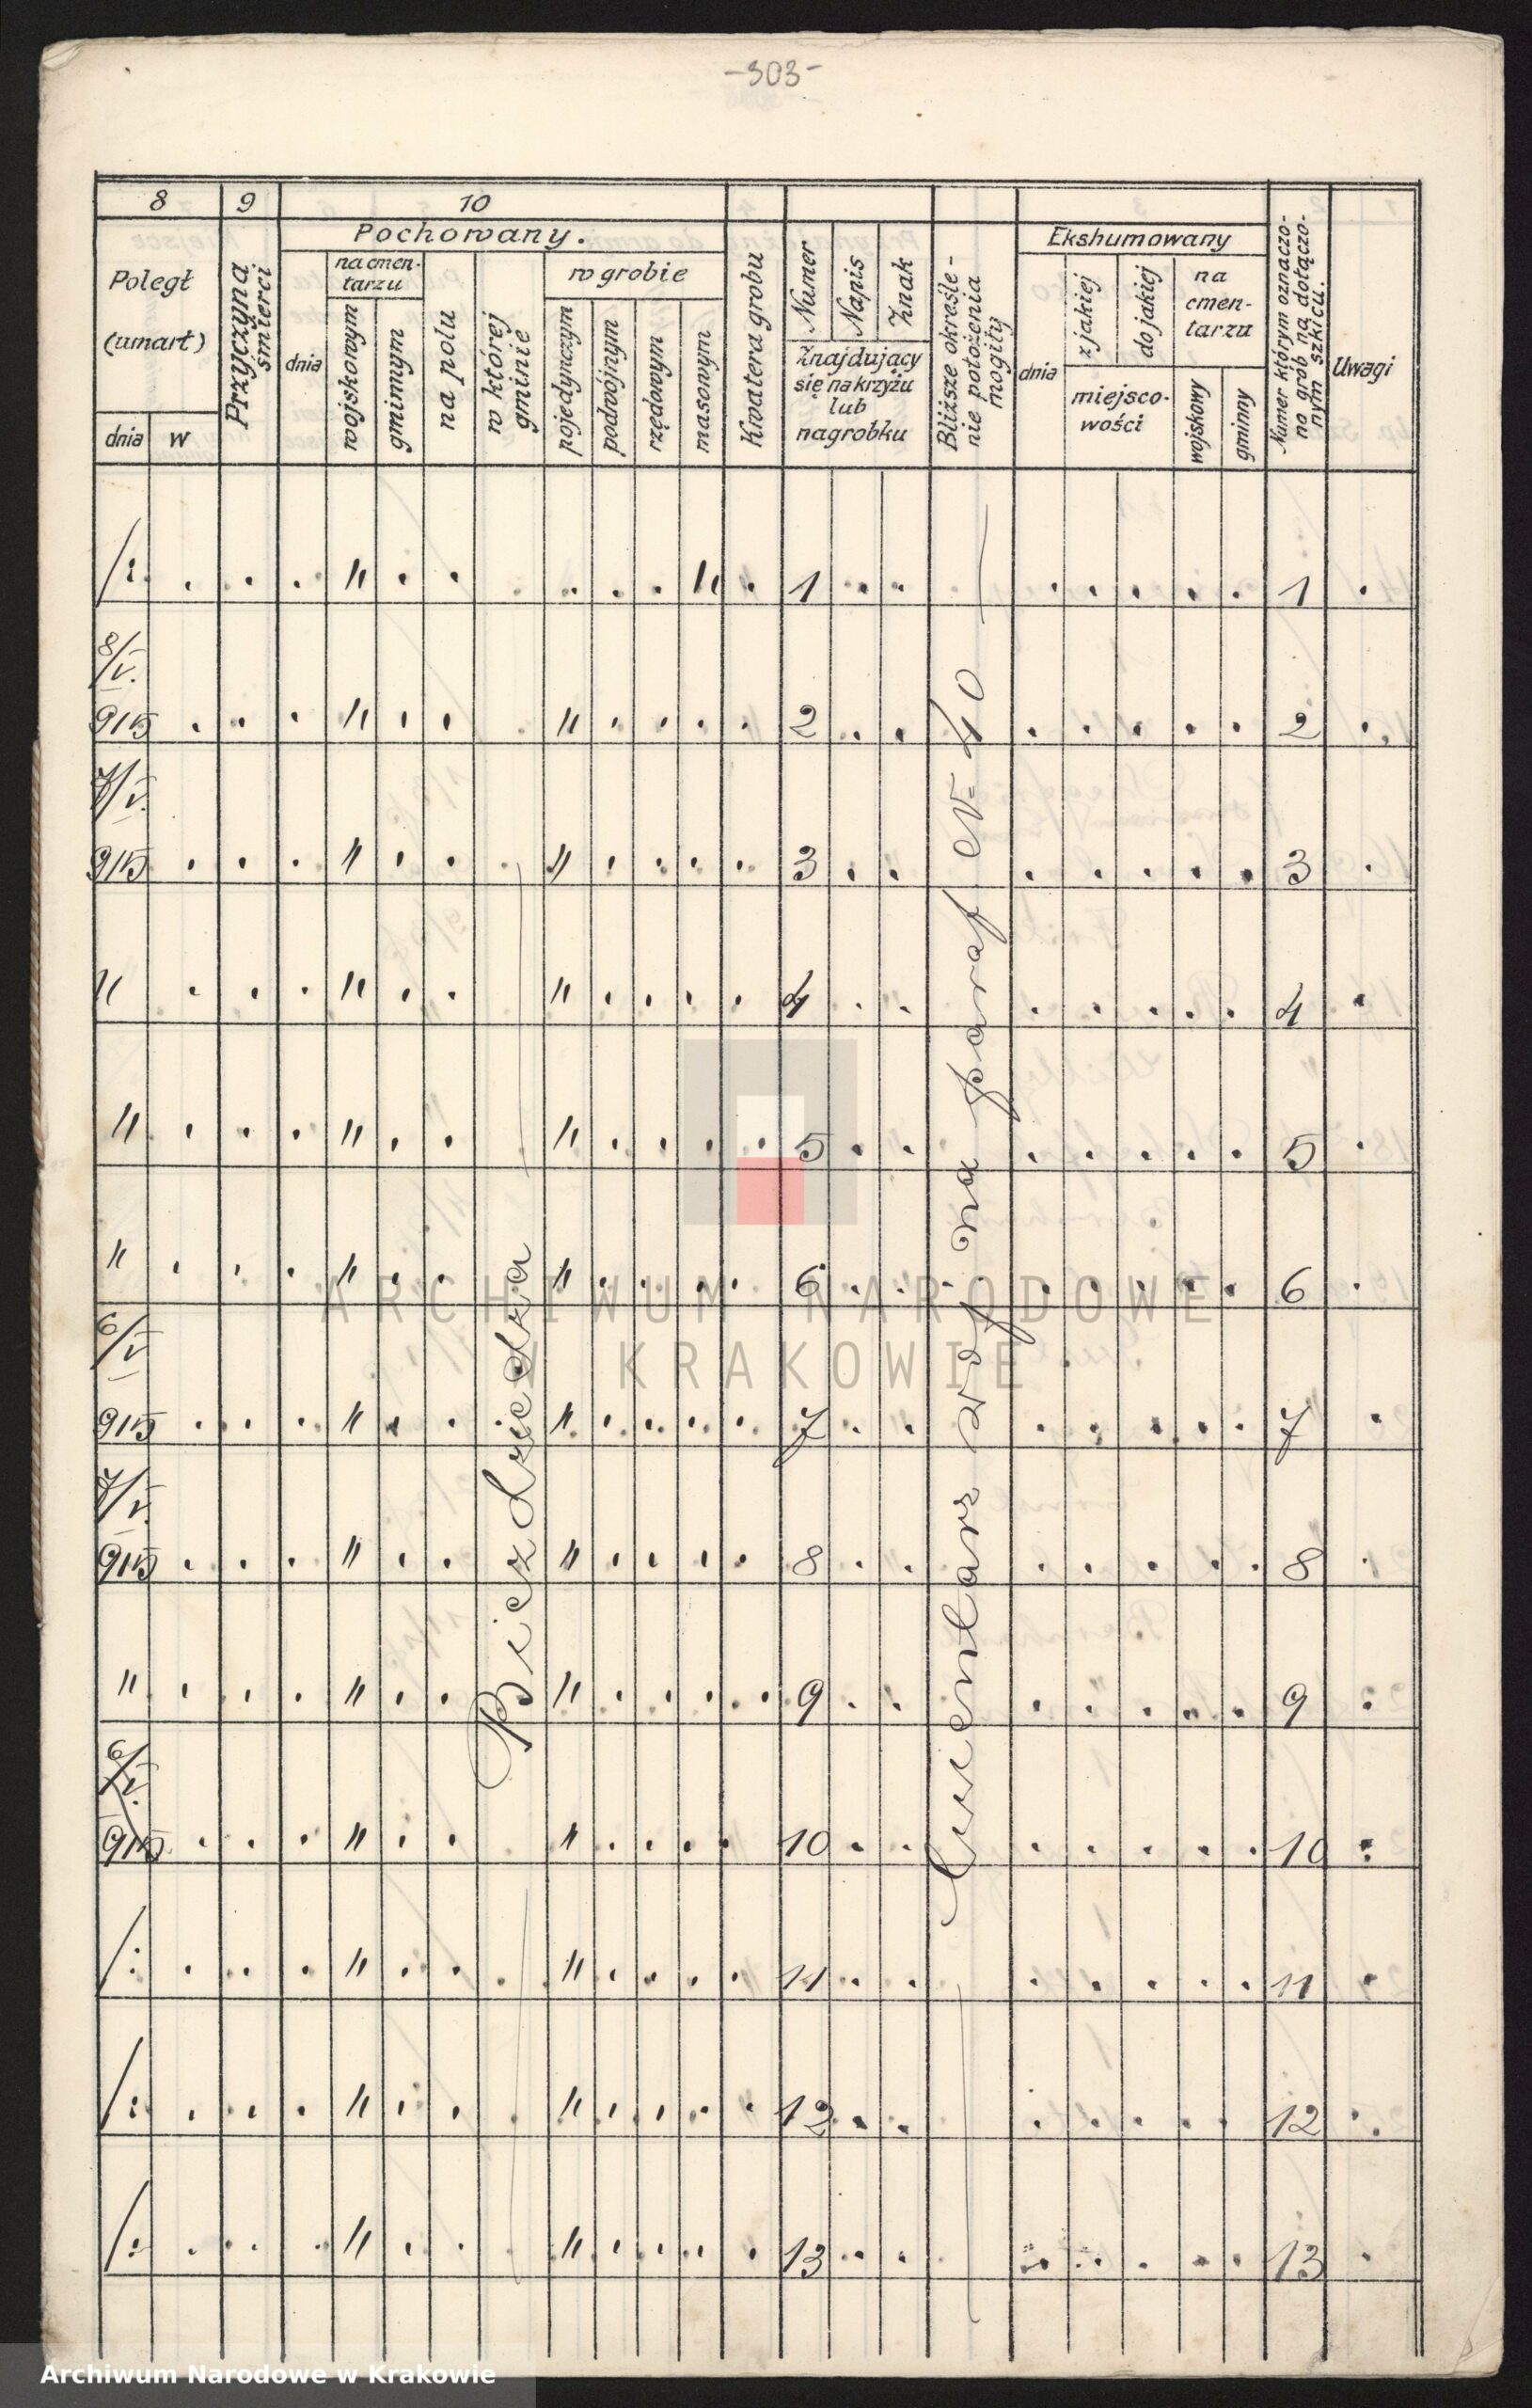 -303-
8 9 10
Pochowany.
Poległ
(umarł)
dnia w
Przyczyna śmierci
dnia
na cmen-
tarzu
wojskowym
gminnym
na polu
w której
gminie
w grobie
pojedynczym
podwójnym
rzędowym
masowym
Kwatera grobu
Numer
Napis
Znak
Znajdujący
się na krzyżu
lub
nagrobku
Bliższe określe-
nie położenia
mogiły
Ekshumowany
dnia
z jakiej
do jakiej
miejsco-
wości
na
cmen-
tarzu
wojskowy
gminny
Numer którym oznaczo-
no grób na dołączo-
nym szkicu.
Uwagi
/: . . . " . . . . . " . 1 . . . . . . . 1 .
8/V.
915 . . . " . . " . . . . 2 . . . . . . . 2 .
7/V.
915 . . . " . . " . . . . 3 . . . . . . . 3 .
" . . . " . . " . . . . 4 . . . . . . . 4 .
" . . . " . . " . . . . 5 . . . . . . . 5 .
" . . . " . . " . . . . 6 . . . . . . . 6 .
6/V
915 . . . " . . " . . . . 7 . . . . . . . 7 .
7/V.
915 . . . " . . " . . . . 8 . . . . . . . 8 .
" . . . " . . " . . . . 9 . . . . . . . 9 .
6/V.
915 . . . " . . " . . . . 10 . . . . . . . 10 .
/: . . . " . . " . . . . 11 . . . . . . . 11 .
/: . . . " . . " . . . . 12 . . . . . . . 12 .
/: . . . " . . " . . . . 13 . . . . . . . 13 .
Biezdziedza
Cmentarz woj. na paraf. N= 40
ARCHIWUM NARODOWE
W KRAKOWIE
Archiwum Narodowe w Krakowie